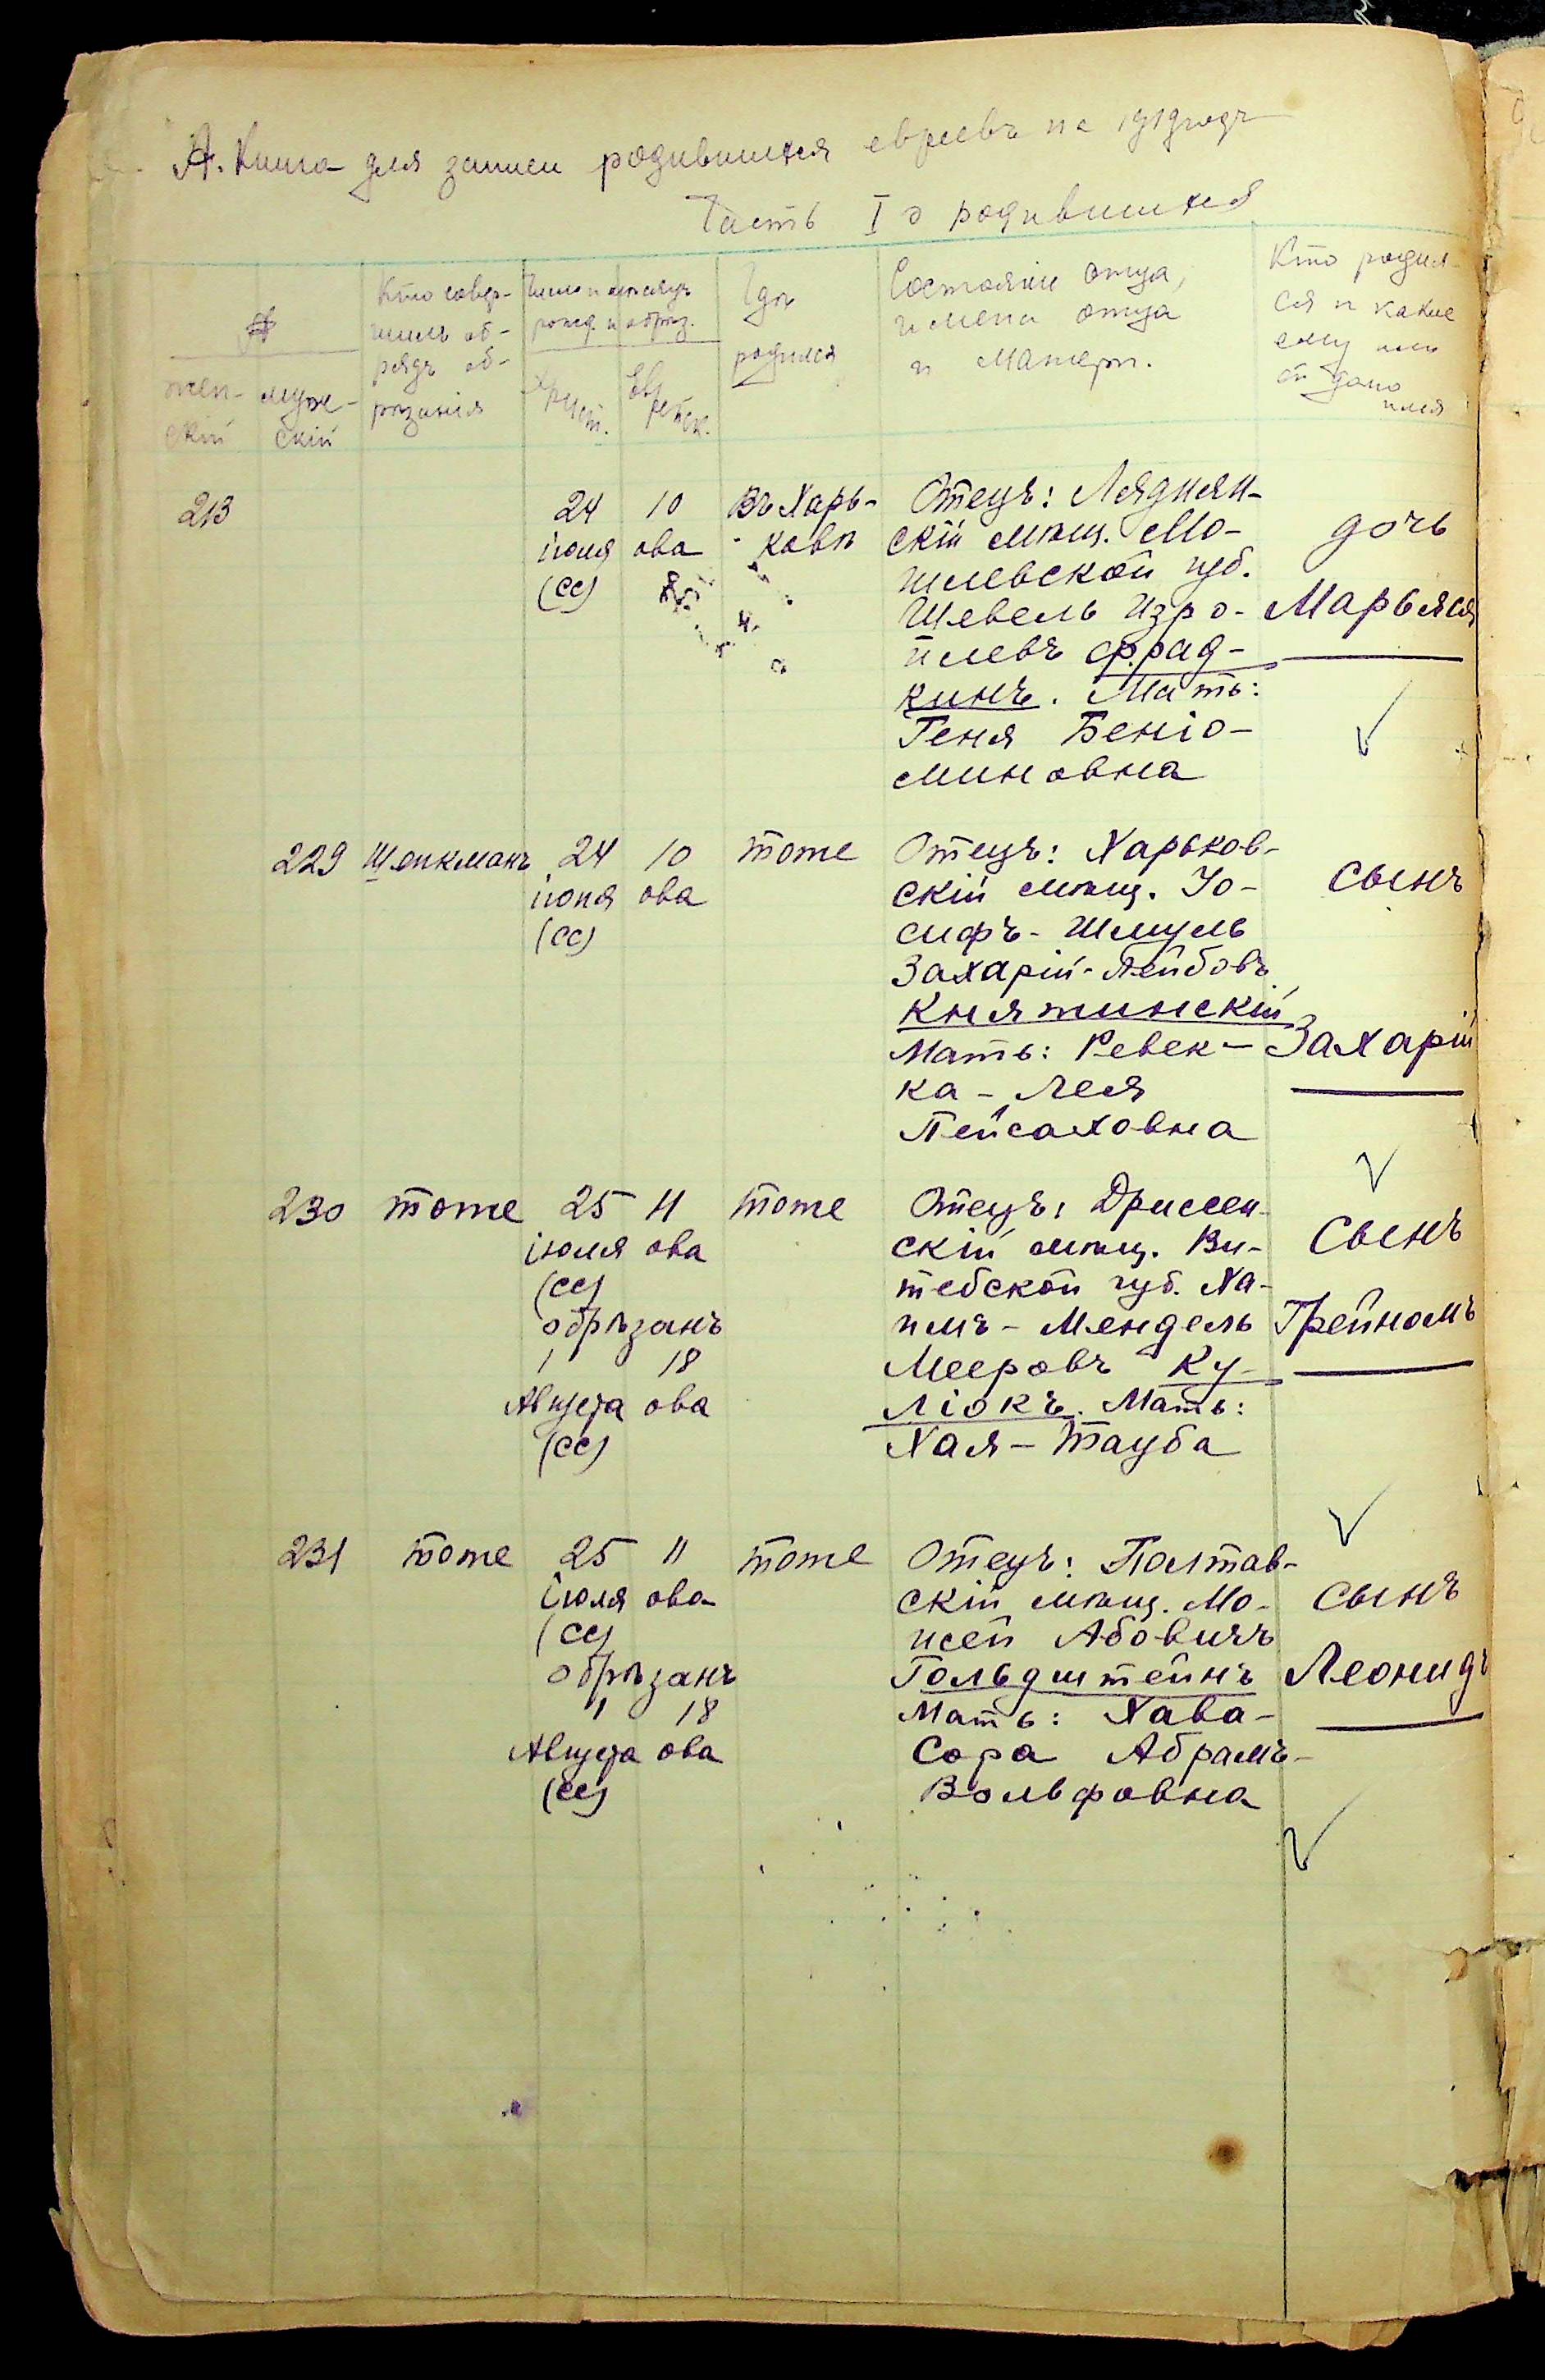 А. Книга для записи родившихся евреевъ на 1919 годъ
Часть I о родившихся
№
жен-
скій
муже-
скій
Кто совер-
шилъ об-
рядъ об-
рѣзанія
Число и мѣсяцъ
рожд. и обрѣз.
Христ.
Еврейск.
Гдѣ
родился
Состояніе отца,
имена отца
и матери.
Кто родил-
ся и какое
ему или
ей дано
имя
213
24
іюля
(сс)
10
ова
Въ Харь-
ковѣ
Отецъ: Ляднян-
скій мѣщ. Мо-
гилевской губ.
Шевель Изро-
илевъ Фрад-
кинъ. Мать:
Геня Беніо-
миновна
дочь
Марьяся
229
Шенкманъ
24
іюля
(сс)
10
ова
тоже
Отецъ: Харьков-
скій мѣщ. Іо-
сифъ-Шмуль
Захарій-Лейбовъ
Княжинскій
Мать: Ревек-
ка-Лея
Пейсаховна
сынъ
Захарій
230
тоже
25
іюля
(сс)
11
ова
обрѣзанъ
1
Августа
(сс)
18
ова
тоже
Отецъ: Дриссен-
скій мѣщ. Ви-
тебской губ. Ха-
имъ-Мендель
Мееровъ Ку-
ліокъ. Мать:
Хая-Тауба
сынъ
Грейномъ
231
тоже
25
іюля
(сс)
11
ова
обрѣзанъ
1
Августа
(сс)
18
ова
тоже
Отецъ: Полтав-
скій мѣщ. Мо-
исей Абовичъ
Гольдштейнъ
Мать: Хава-
Сора Абрамъ-
Вольфовна
сынъ
Леонидъ